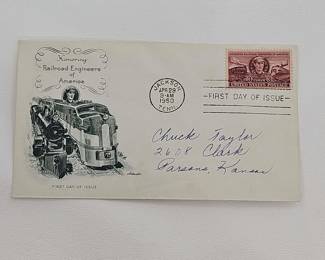 Honoring
Railroad Engineers
of
America
FIRST DAY OF ISSUE
JACKSON
APR 29
9-AM
1950
TENN.
UNITED STATES POSTAGE
FIRST DAY OF ISSUE
Chuck Taylor
2608 Clark
Parsons, Kansas